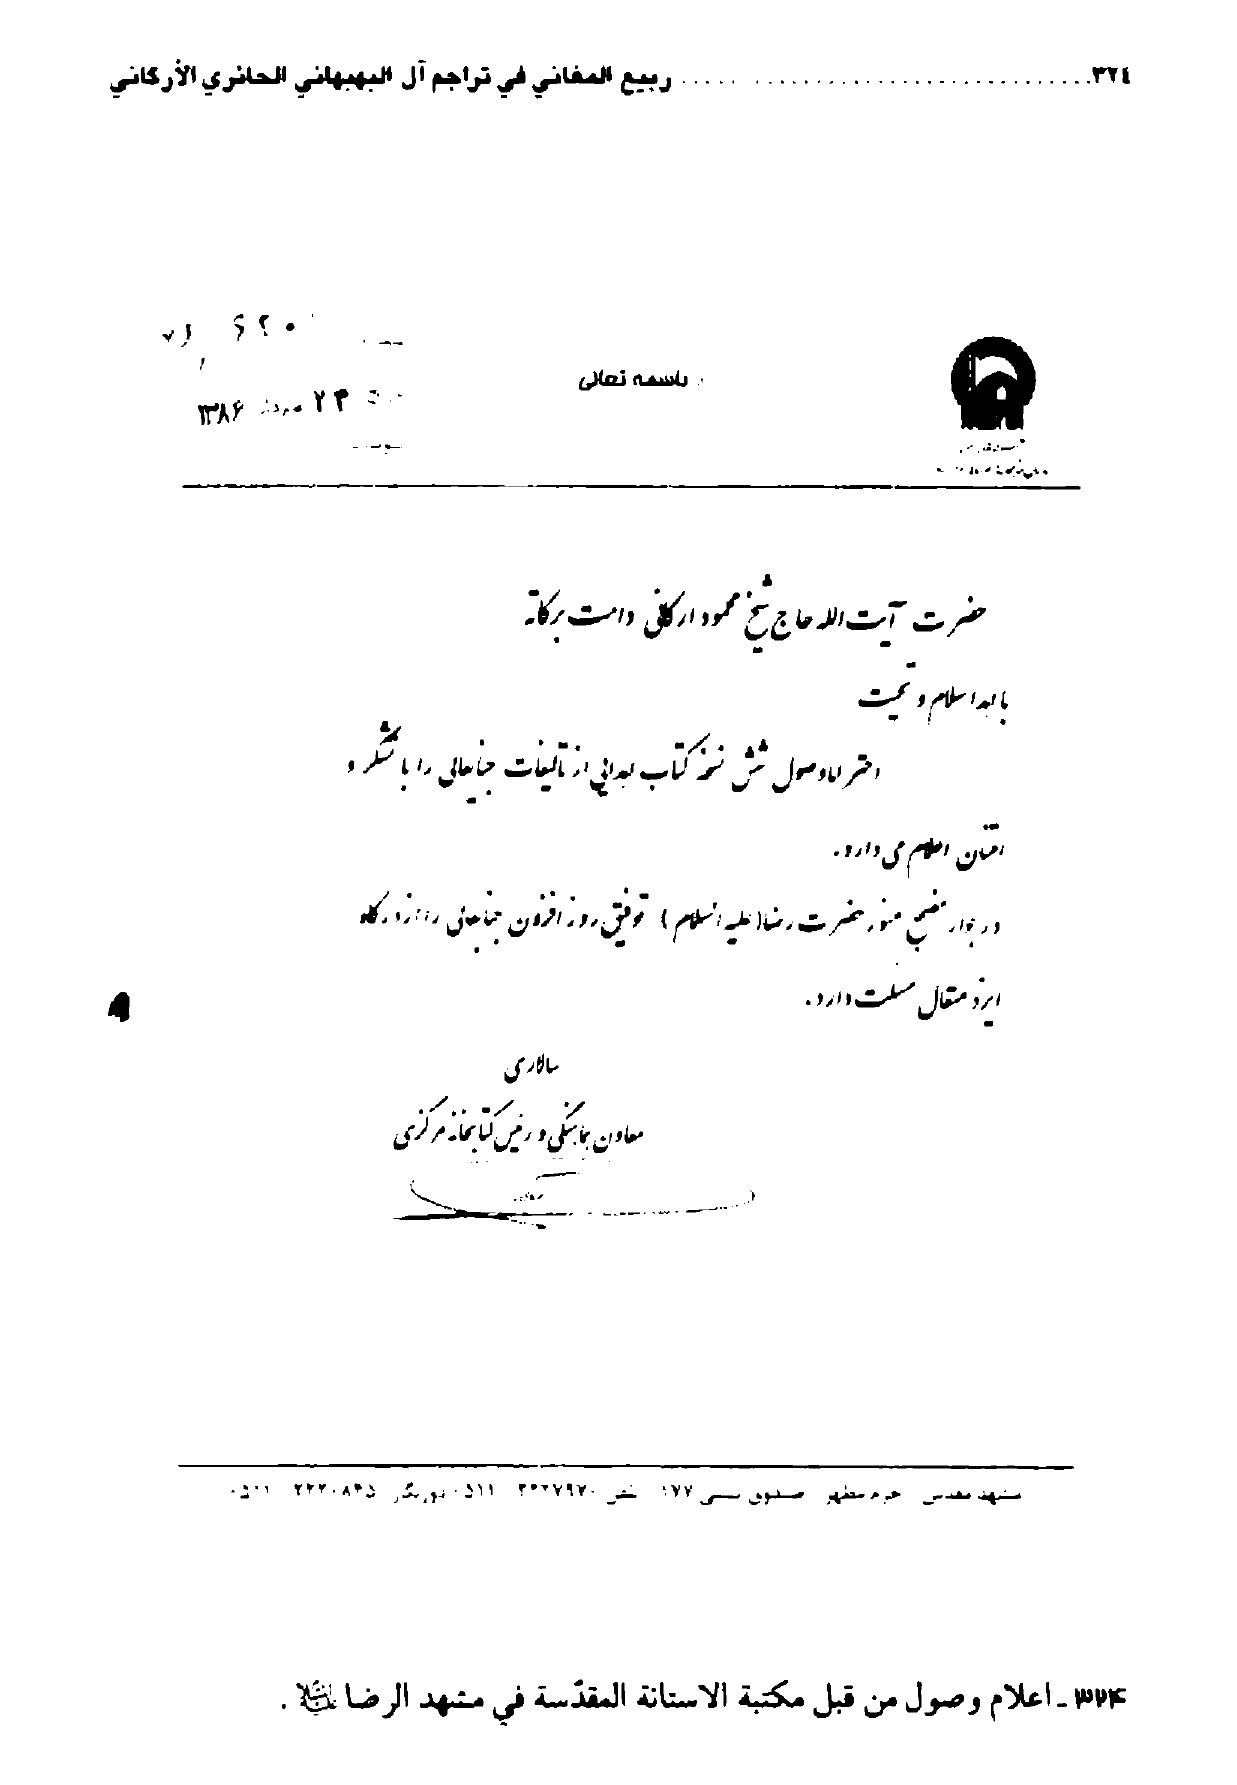 ٣٢٤ ..... ربيع المغاني في تراجم آل البهبهاني الحائري الأركاني
باسمه تعالی
۲۳ مرداد ۱۳۸۶
حضرت آیت الله حاج شیخ محمود ارکانی دامت برکاته
با اهداء سلام و تحیت
احتراماً وصول شش نسخه کتاب اهدایی از تالیفات جنابعالی را با تشکر و
امتنان اعلام می دارد.
در جوار مضجع منور حضرت رضا(علیه السلام) توفیق روز افزون جنابعالی را از درگاه
ایزد متعال مسئلت دارد.
سالاری
معاون هماهنگی و رئیس کتابخانه مرکزی
مشهد مقدس حرم مطهر صندوق پستی ۱۷۷
٣٢۴ ـ اعلام وصول من قبل مكتبة الاستانة المقدّسة في مشهد الرضا .